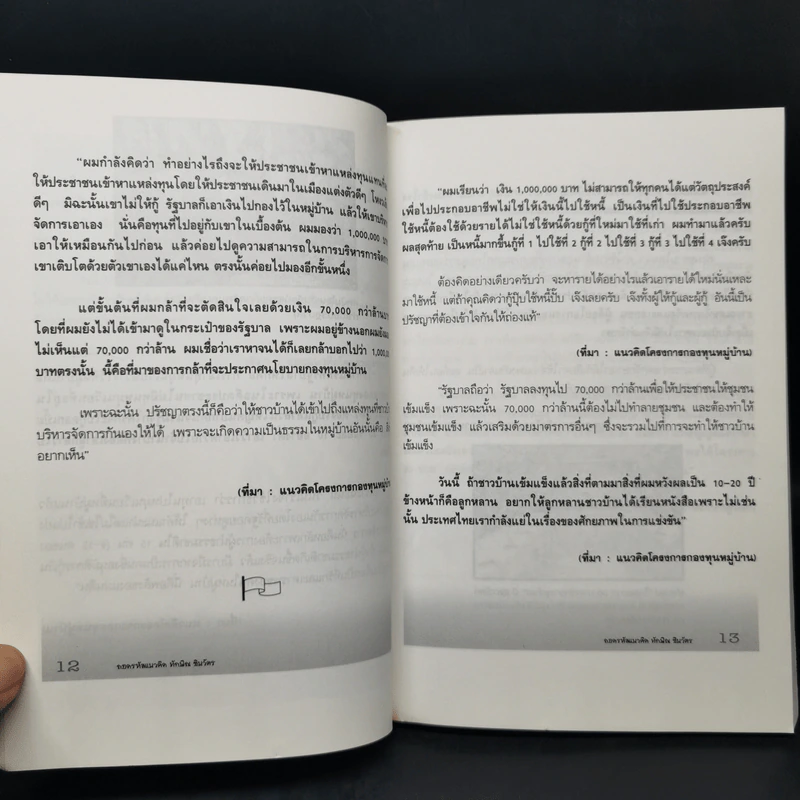 "ผมกำลังคิดว่า ทำอย่างไรถึงจะให้ประชาชนเข้าหาแหล่งทุนแทนที่
ให้ประชาชนเข้าหาแหล่งทุนโดยให้ประชาชนเดินมาในเมืองแต่งตัวดีๆ
ดีๆ มิฉะนั้นเขาไม่ให้กู้ รัฐบาลก็เอาเงินไปกองไว้ในหมู่บ้าน แล้วให้เขาบริหาร
จัดการเอาเอง นั่นคือทุนที่ไปอยู่กับเขาในเบื้องต้น ผมมองว่า 1,000,000 บาท
เอาให้เหมือนกันไปก่อน แล้วค่อยไปดูความสามารถในการบริหารการจัดการ
เขาเติบโตด้วยตัวเขาเองได้แค่ไหน ตรงนั้นค่อยไปมองอีกขั้นหนึ่ง
แต่ขั้นต้นที่ผมกล้าที่จะตัดสินใจเลยด้วยเงิน 70,000 กว่าล้าน
โดยที่ผมยังไม่ได้เข้ามาดูในกระเป๋าของรัฐบาล เพราะผมอยู่ข้างนอกผมยัง
ไม่เห็นแต่ 70,000 กว่าล้าน ผมเชื่อว่าเราหาจนได้ก็เลยกล้าบอกไปว่า
บาทตรงนั้น นี้คือที่มาของการกล้าที่จะประกาศนโยบายกองทุนหมู่บ้าน
เพราะฉะนั้น ปรัชญาตรงนี้ก็คือว่าให้ชาวบ้านได้เข้าไปถึงแหล่งทุนที่
บริหารจัดการกันเองให้ได้ เพราะจะเกิดความเป็นธรรมในหมู่บ้านอันนั้นคือ
อยากเห็น"
(ที่มา : แนวคิดโครงการกองทุนหมู่บ้าน
12 ถอดรหัสแนวคิด ทักษิณ ชินวัตร
"ผมเรียนว่า เงิน 1,000,000 บาท ไม่สามารถให้ทุกคนได้แต่วัตถุประสงค์
เพื่อไปประกอบอาชีพไม่ใช่ให้เงินนี้ไปใช้หนี้ เป็นเงินที่ไปใช้ประกอบอาชีพ
ใช้หนี้ต้องใช้ด้วยรายได้ไม่ใช่ใช้หนี้ด้วยกู้ที่ใหม่มาใช้ที่เก่า ผมทำมาแล้วครับ
ผลสุดท้าย เป็นหนี้มากขึ้นกู้ที่ 1 ไปใช้ที่ 2 กู้ที่ 2 ไปใช้ที่ 3 กู้ที่ 3 ไปใช้ที่ 4 เจ๊งครับ
ต้องคิดอย่างเดียวครับว่า จะหารายได้อย่างไรแล้วเอารายได้ใหม่นั่นแหละ
มาใช้หนี้ แต่ถ้าคุณคิดว่ากู้ปุ๊บใช้หนี้ปั๊บ เจ๊งเลยครับ เจ๊งทั้งผู้ให้กู้และผู้กู้ อันนี้เป็น
ปรัชญาที่ต้องเข้าใจกันให้ถ่องแท้"
(ที่มา : แนวคิดโครงการกองทุนหมู่บ้าน)
"รัฐบาลถือว่า รัฐบาลลงทุนไป 70,000 กว่าล้านเพื่อให้ประชาชนให้ชุมชน
เข้มแข็ง เพราะฉะนั้น 70,000 กว่าล้านนี้ต้องไม่ไปทำลายชุมชน และต้องทำให้
ชุมชนเข้มแข็ง แล้วเสริมด้วยมาตรการอื่นๆ ซึ่งจะรวมไปที่การจะทำให้ชาวบ้าน
เข้มแข็ง
วันนี้ ถ้าชาวบ้านเข้มแข็งแล้วสิ่งที่ตามมาสิ่งที่ผมหวังผลเป็น 10-20 ปี
ข้างหน้าก็คือลูกหลาน อยากให้ลูกหลานชาวบ้านได้เรียนหนังสือเพราะไม่เช่น
นั้น ประเทศไทยเรากำลังแย่ในเรื่องของศักยภาพในการแข่งขัน"
(ที่มา : แนวคิดโครงการกองทุนหมู่บ้าน)
ถอดรหัสแนวคิด ทักษิณ ชินวัตร 13